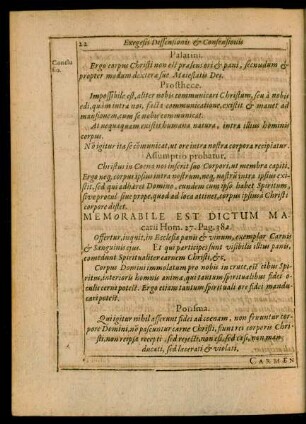 22 Exegesis Dissensionis & Consensionis
Palatini.
Ergo corpus Christi non est præsens ori & pani, secundum &
propter modum dexteræ suæ Maiestatis Dei.
Prosthece.
Impossibile est, aliter nobis communicari Christum, seu à nobis
edi, quàm intra nos, factâ communicatione, existit & manet ad
mansionem, cum se nobis communicat.
At nequaquam existit humana natura, intra illius hominis
corpus.
No igitur ita se cõmunicat, ut ore intra nostra corpora recipiatur.
Assumptio probatur.
Christus in Coena nos inserit suo Corpori, ut membra capiti,
Ergo neq, corpus ipsius intra nostrum, neq, nostrũ intra ipsius exi-
stit, sed qui adhæret Domino, eiusdem cum ipso habet Spiritum,
sive procul sive prope, quod ad loca attinet, corpus ipsius à Christi
corpore distet.
MEMORABILE EST DICTUM MA-
carii Hom. 27. Pag. 382
Offertur, inquit, in Ecclesia panis & vinum, exemplar Carnis
& Sanguinis ejus. Et qui participes sunt visibilis illius panis,
comedunt Spiritualiter carnem Christi, &c.
Corpus Domini immolatum pro nobis in cruce, est cibus Spi-
ritus, interioris hominis animæ, qui tantùm spiritualibus fidei o-
culis cerni potest. Ergo etiam tantum spirituali ore fidei mandu-
cari potest.
Potissima.
Qui igitur nihil afferunt fidei ad coenam, non fruuntur cor-
pore Domini, nõ pascuntur carne Christi, fiunt rei corporis Chri-
sti, non respectu recepti, sed rejecti, non esi, sed cæsi, non man-
ducati, sed lacerati & violati,
CARMEN